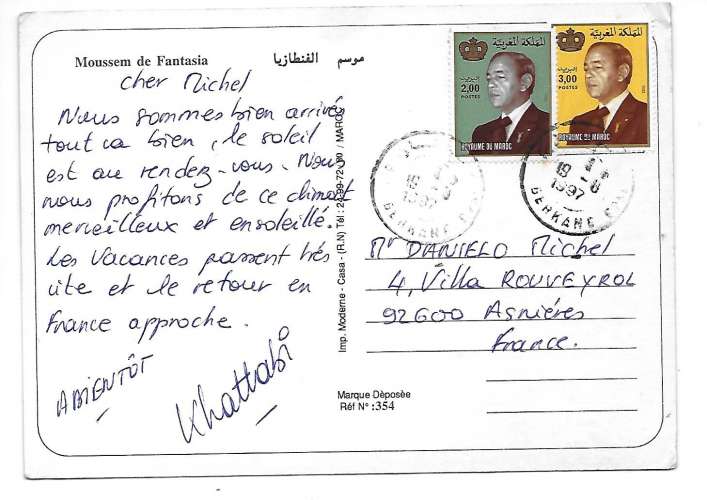 Moussem de Fantasia موسم الفنطازيا
cher Michel
Nous sommes bien arrivés
tout va bien, le soleil
est au rendez-vous. Nous
nous profitons de ce climat
merveilleux et ensoleillé.
Les Vacances passent très
vite et le retour en
France approche.
ABIENTÔT
Khattabi
Imp. Moderne - Casa - (R.N) Tél :
/ MAROC
المملكة المغربية
البريد
2,00
POSTES
ROYAUME DU MAROC
المملكة المغربية
البريد
3,00
POSTES
ROYAUME DU MAROC
18 - 8
1997
BERKANE
18 - 8
1997
BERKANE
Mr DANIELO Michel
4, Villa ROUVEYROL
92600 Asnières
France.
Marque Dèposèe
Réf N° :354